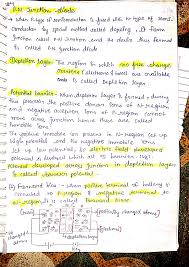 PN Junction diode
→ When P type of semiconductor is fused with N type of semi
conductor by special method called doping. It form
junction called P-N Junction and the device thus formed
is called PN junction diode
Depletion layer: The region in which no free charge
carriers (electrons & holes) are available
is called Depletion layer
Potential barrier: When depletion layer is forming and during
this process the positive donor ions of N-region
and negative acceptor ions of P-region cannot
move across junction hence these are called
immobile ions
→ The positive immobile ion present in N-region set up
high potential and the negative immobile ions
set up low potential so electric field developed
potential is develop which act as barrier. The
potential developed across junction in depletion layer
is called potential barrier.
(1) Forward bias :- When positive terminal of battery is
connected to P-region & negative terminal to
N-region it is called forward bias